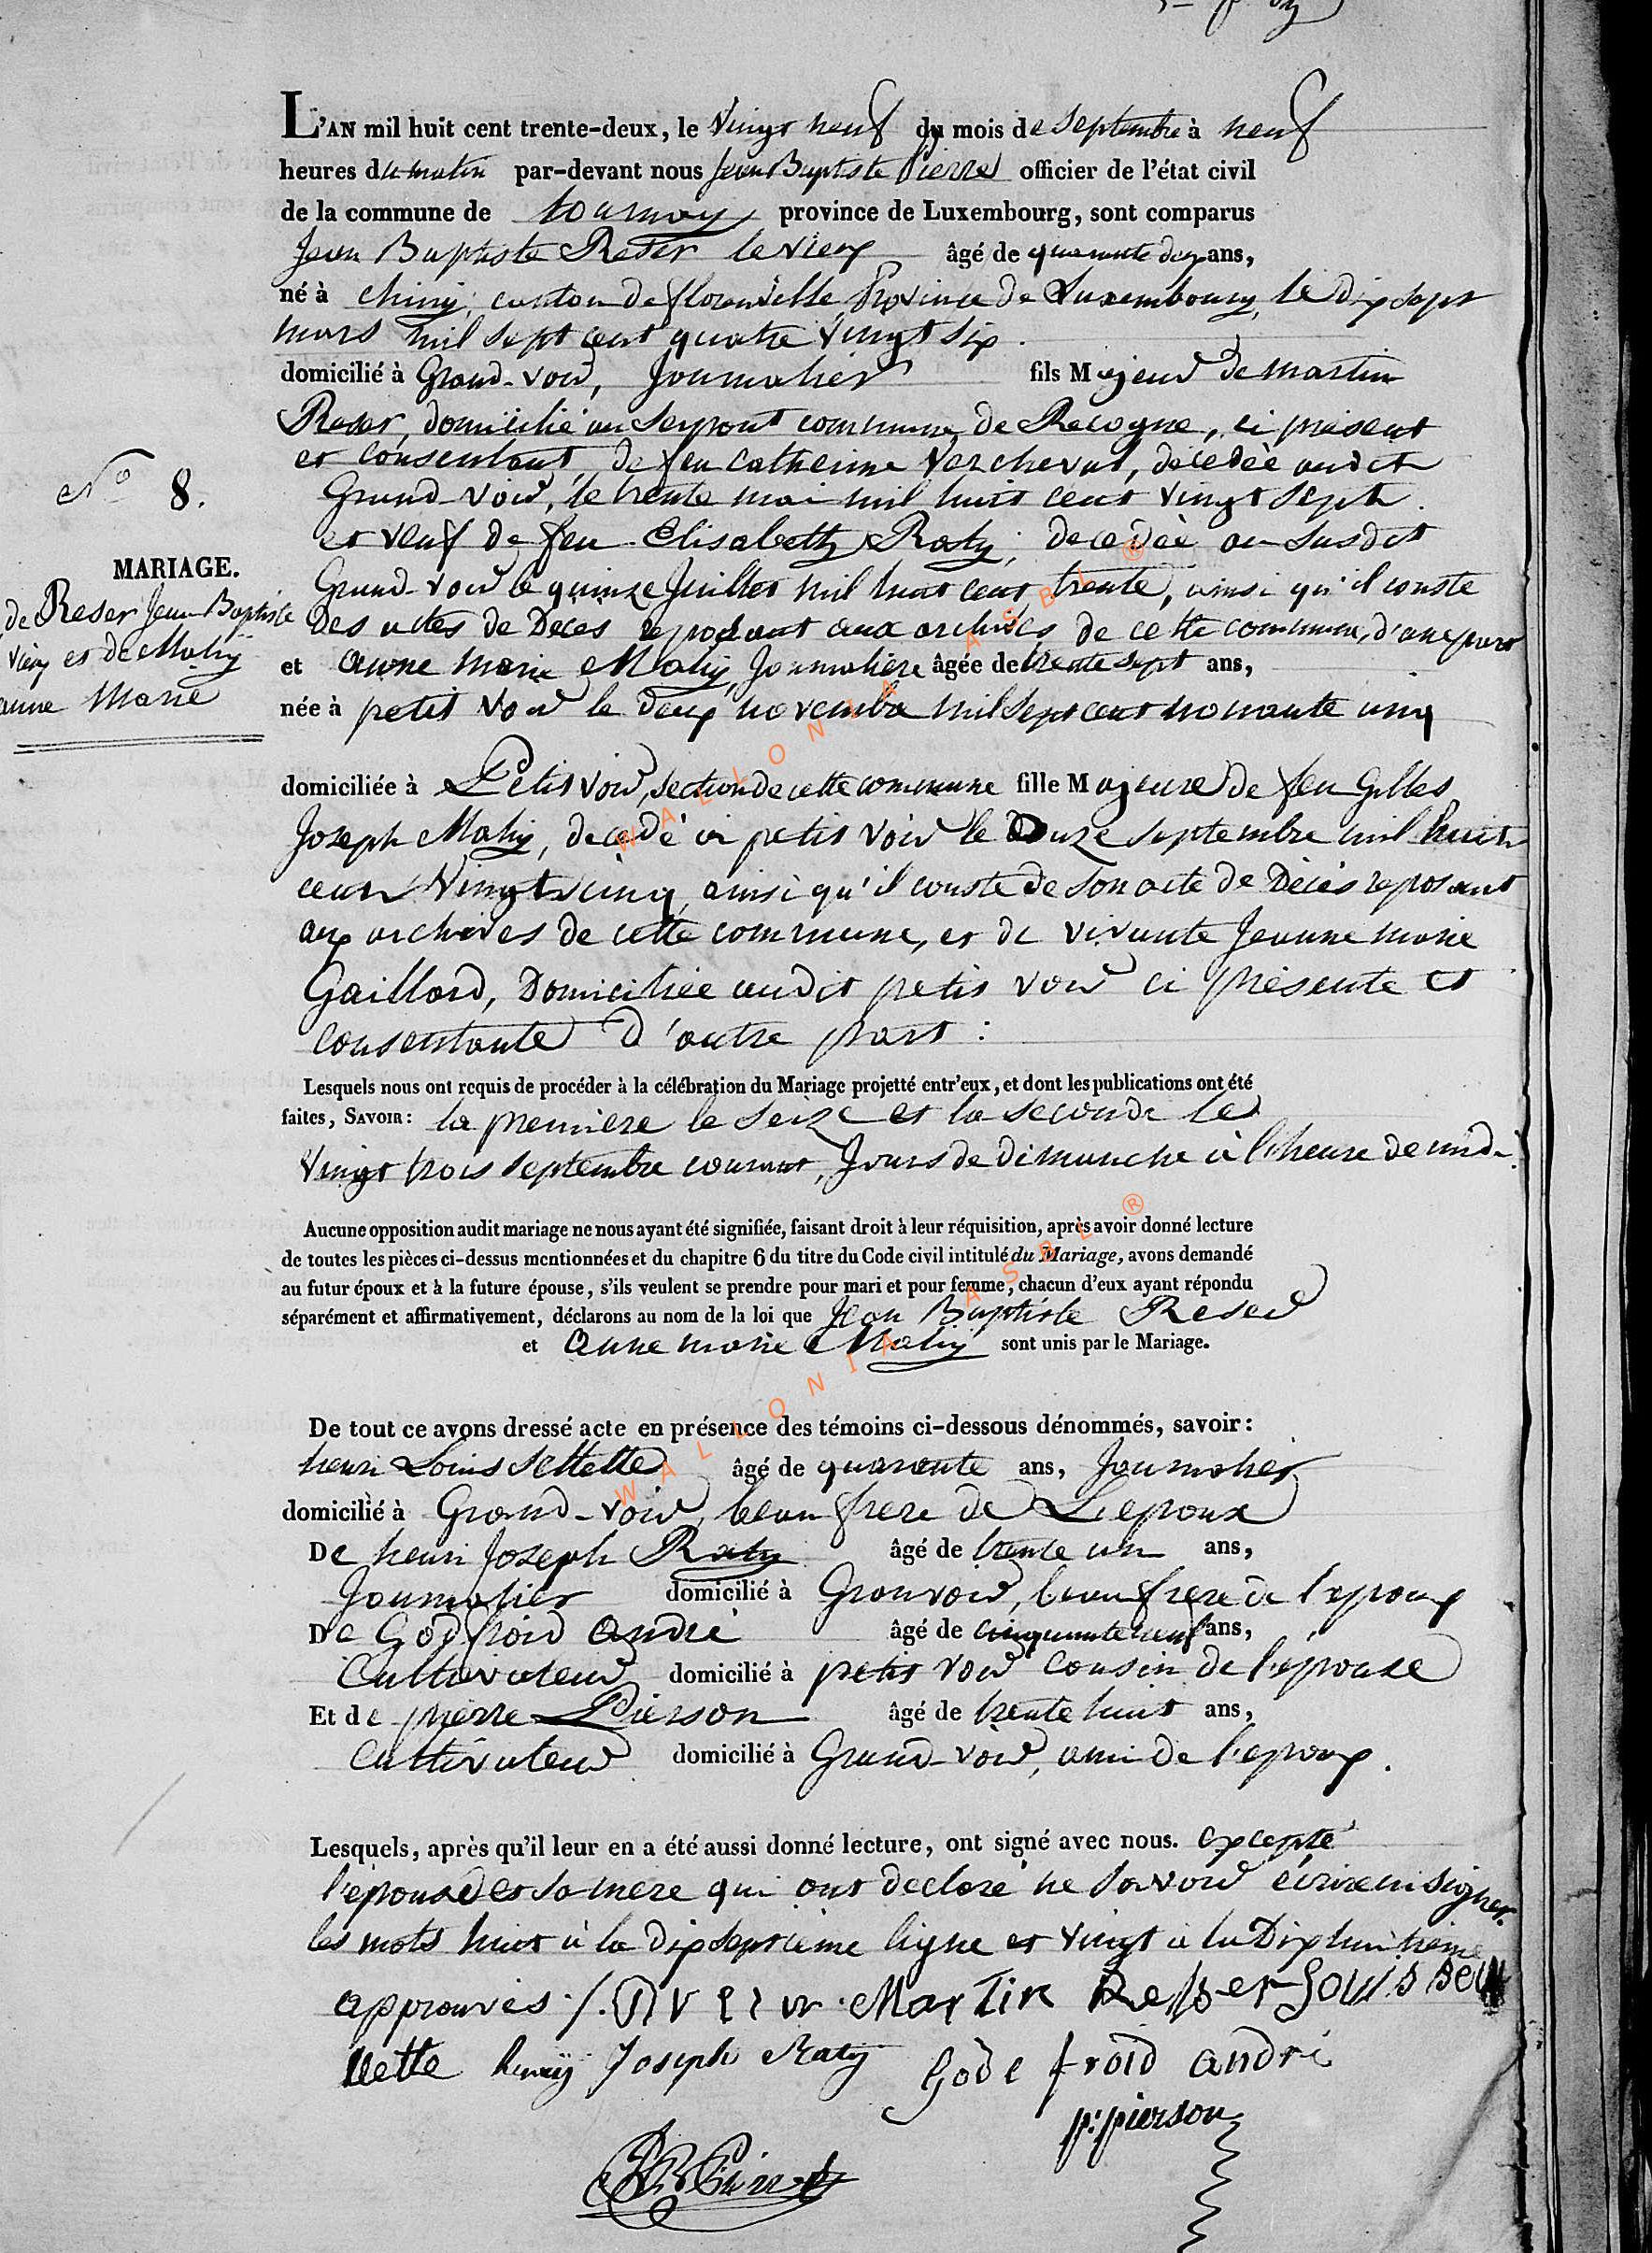 L'AN mil huit cent trente-deux, le Vingt neuf du mois de septembre à neuf
heures du matin par-devant nous Jean Baptiste Pierre officier de l'état civil
de la commune de tournay province de Luxembourg, sont comparus
Jean Baptiste Reser le vieux âgé de quarante six ans,
né à chiny, canton de florenville Province de Luxembourg, le dix sept
mars mil sept cent quatre vingt six.
domicilié à Grand-voir, Journalier fils Majeur de martin
Reser, domicilié au Serpont commune de Recogne, ci présent
et consentant, de feu catherine Vercheval, décédée audit
Grand voir, le trente mai mil huit cent vingt sept.
et veuf de feu Elisabeth Raty, décédée au susdit
Grand-voir le quinze Juillet mil huit cent trente, ainsi qu'il conste
des actes de Décès reposant aux archives de cette commune, d'une part
N° 8.
MARIAGE.
de Reser Jean Baptiste
vieux et de Mahy
anne Marie
et anne marie Mahy, Journalière âgée de trente sept ans,
née à petit voir le deux novembre mil sept cent nonante cinq
domiciliée à Petit voir, section de cette commune fille Majeure de feu Gilles
Joseph Mahy, décédé à petit voir le Douze septembre mil huit
cent Vingt cinq, ainsi qu'il conste de son acte de Décès reposant
aux archives de cette commune, et de vivante Jeanne marie
Gaillard, Domiciliée audit petit voir ci présente et
consentante d'autre part :
Lesquels nous ont requis de procéder à la célébration du Mariage projetté entr'eux, et dont les publications ont été
faites, SAVOIR : la première le seize et la seconde le
Vingt trois septembre courant, Jours de dimanche à l'heure de midi.
Aucune opposition audit mariage ne nous ayant été signifiée, faisant droit à leur réquisition, après avoir donné lecture
de toutes les pièces ci-dessus mentionnées et du chapitre 6 du titre du Code civil intitulé du Mariage, avons demandé
au futur époux et à la future épouse, s'ils veulent se prendre pour mari et pour femme, chacun d'eux ayant répondu
séparément et affirmativement, déclarons au nom de la loi que Jean Baptiste Reser
et Anne marie Mahy sont unis par le Mariage.
De tout ce avons dressé acte en présence des témoins ci-dessous dénommés, savoir :
henri Louis âgé de quarante ans, Journalier
domicilié à Grand-voir, beau frere de L'epoux
De henri Joseph Raty âgé de trente un ans,
Journalier domicilié à Granvoir, beau frere de l'epoux
De Godfroid André âgé de cinquante neuf ans,
Cultivateur domicilié à petit voir cousin de l'épouse
Et de pierre Pierson âgé de trente huit ans,
Cultivateur domicilié à Grand-voir, ami de l'epoux.
Lesquels, après qu'il leur en a été aussi donné lecture, ont signé avec nous. excepté
l'epouse et sa mere qui ont declaré ne savoir écrire ni signer.
les mots huit à la dix septième ligne et vingt à la Dix huitième
approuvés ./. Martin Resser Louis
henry Joseph Raty Gode froid andré
p: pierson
JB Pierre
WALLONIA ASBL ®
WALLONIA ASBL ®